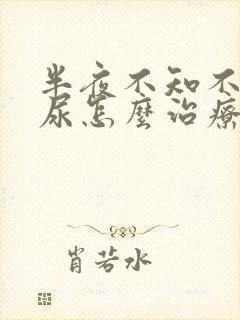 半夜不知不
尿怎麼治療
肖若水